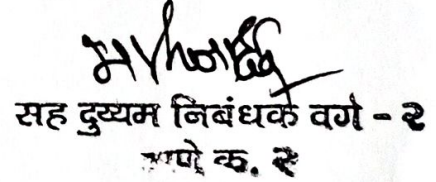 सह दुय्यम निबंधक वर्ग - २
क. २